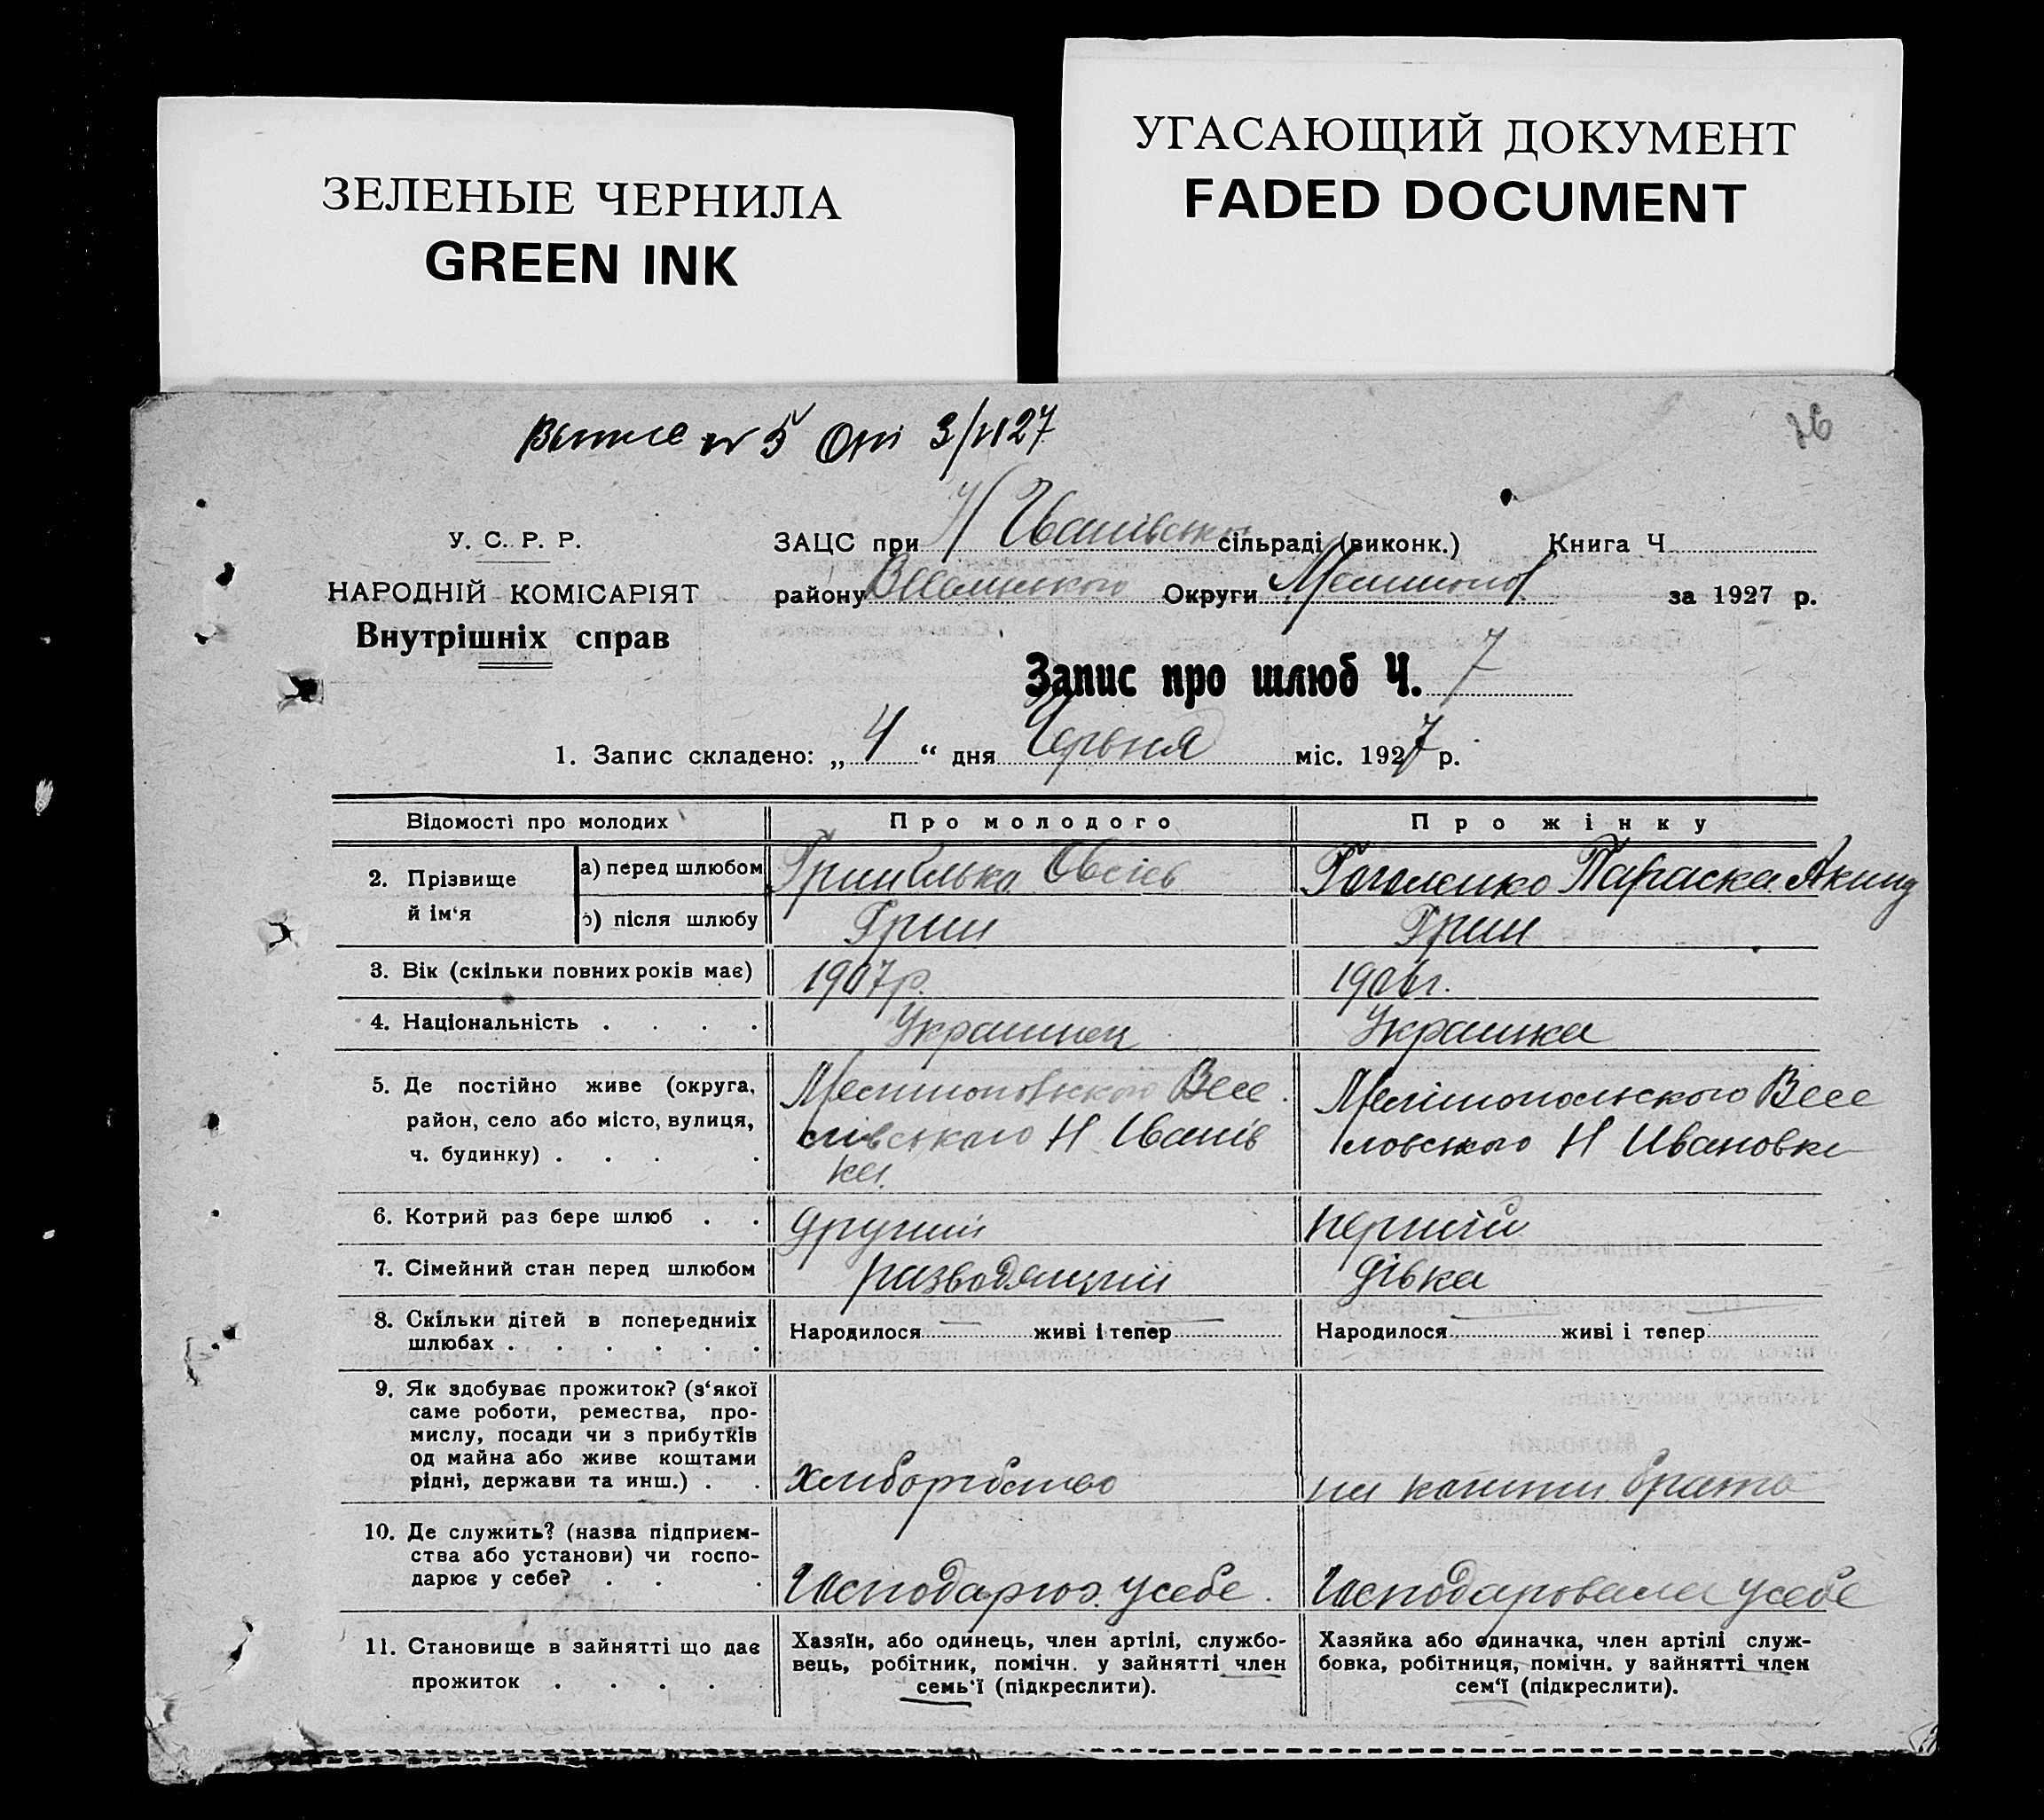 ЗЕЛЕНЫЕ ЧЕРНИЛА
GREEN INK
УГАСАЮЩИЙ ДОКУМЕНТ
FADED DOCUMENT
№ 5 От 3/VI 27
У. С. Р. Р.
НАРОДНІЙ КОМІСАРІЯТ
Внутрішніх справ
ЗАЦС при Н Іванівськ сільраді (виконк.) Книга Ч
району Округи Мелитопол за 1927 р.
Запис про шлюб Ч. 7
1. Запис складено: „ 4 “ дня Червня міс. 1927 р.
Відомості про молодих Про молодого Про жінку
2. Прізвище й ім‘я
а) перед шлюбом Гриш Илько Овсіев Гоголенко Параска Акинд
б) після шлюбу Гриш Гриш
3. Вік (скільки повних років має) 1907р. 1906г.
4. Національність . . . . Украинец Украинка
5. Де постійно живе (округа, район, село або місто, вулиця, ч. будинку) . . . .
Мелитопольского Весе
лівського Н Іванів
ки.
Мелітопольского Весе
ловского Н Ивановки
6. Котрий раз бере шлюб . . другий перший
7. Сімейний стан перед шлюбом дівка
8. Скільки дітей в попередниіх шлюбах . . . . . .
Народилося живі і тепер Народилося живі і тепер
9. Як здобуває прожиток? (з‘якої
саме роботи, ремества, про-
мислу, посади чи з прибутків
од майна або живе коштами
рідні, держави та инш.) . .
хлиборобство на кошти брата
10. Де служить? (назва підприєм-
ства або установи) чи госпо-
дарює у себе? . . .
Господарює у себе. Господаровала у себе
11. Становище в зайнятті що дає
прожиток . . . .
Хазяїн, або одинець, член артілі, службо-
вець, робітник, помічн. у зайнятті член
семь‘ї (підкреслити).
Хазяйка або одиначка, член артілі служ-
бовка, робітниця, помічн. у зайнятті член
сем‘ї (підкреслити).